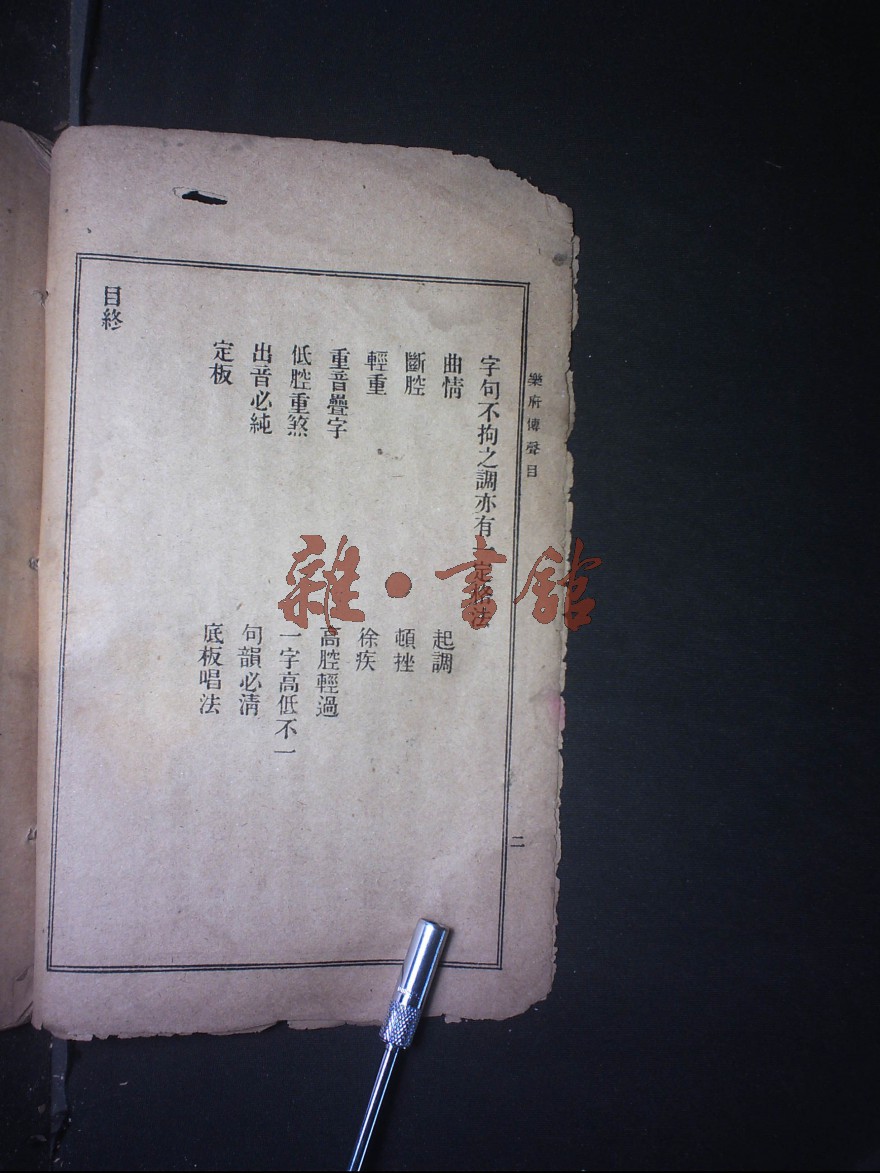 樂府傳聲目
字句不拘之調亦有一定格法
曲情
起調
斷腔
頓挫
輕重
徐疾
重音疊字
高腔輕過
低腔重煞
一字高低不一
出音必純
句韻必清
定板
底板唱法
目終
二
雜·書館